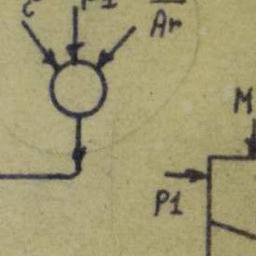 P1
Ar
M
P1